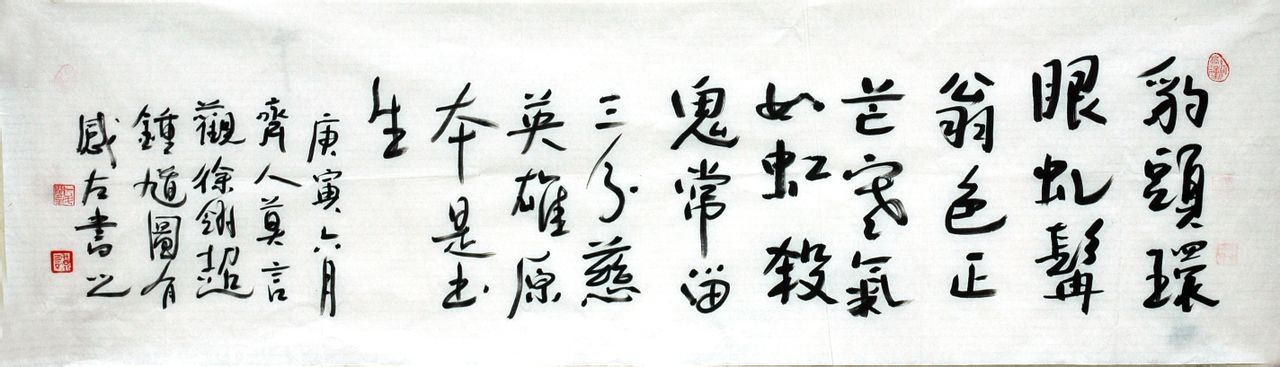 豹頭環
眼虬髯
翁色正
芒寒氣
如虹殺
鬼常留
三分慈
英雄原
本是书
生
庚寅六月
齊人莫言
觀徐翎超
鍾馗圖有
感左書之